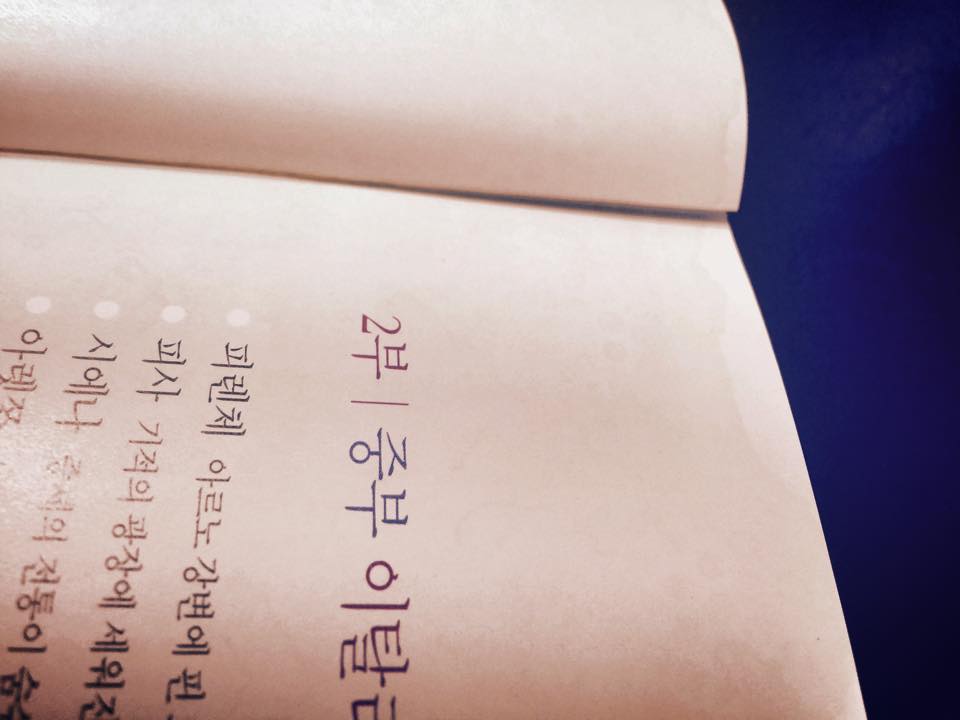 2부 | 중부 이탈
피렌체 아르노 강변에 핀
피사 기적의 광장에 세워진
시에나 중세의 전통이 숨
아렛쪼